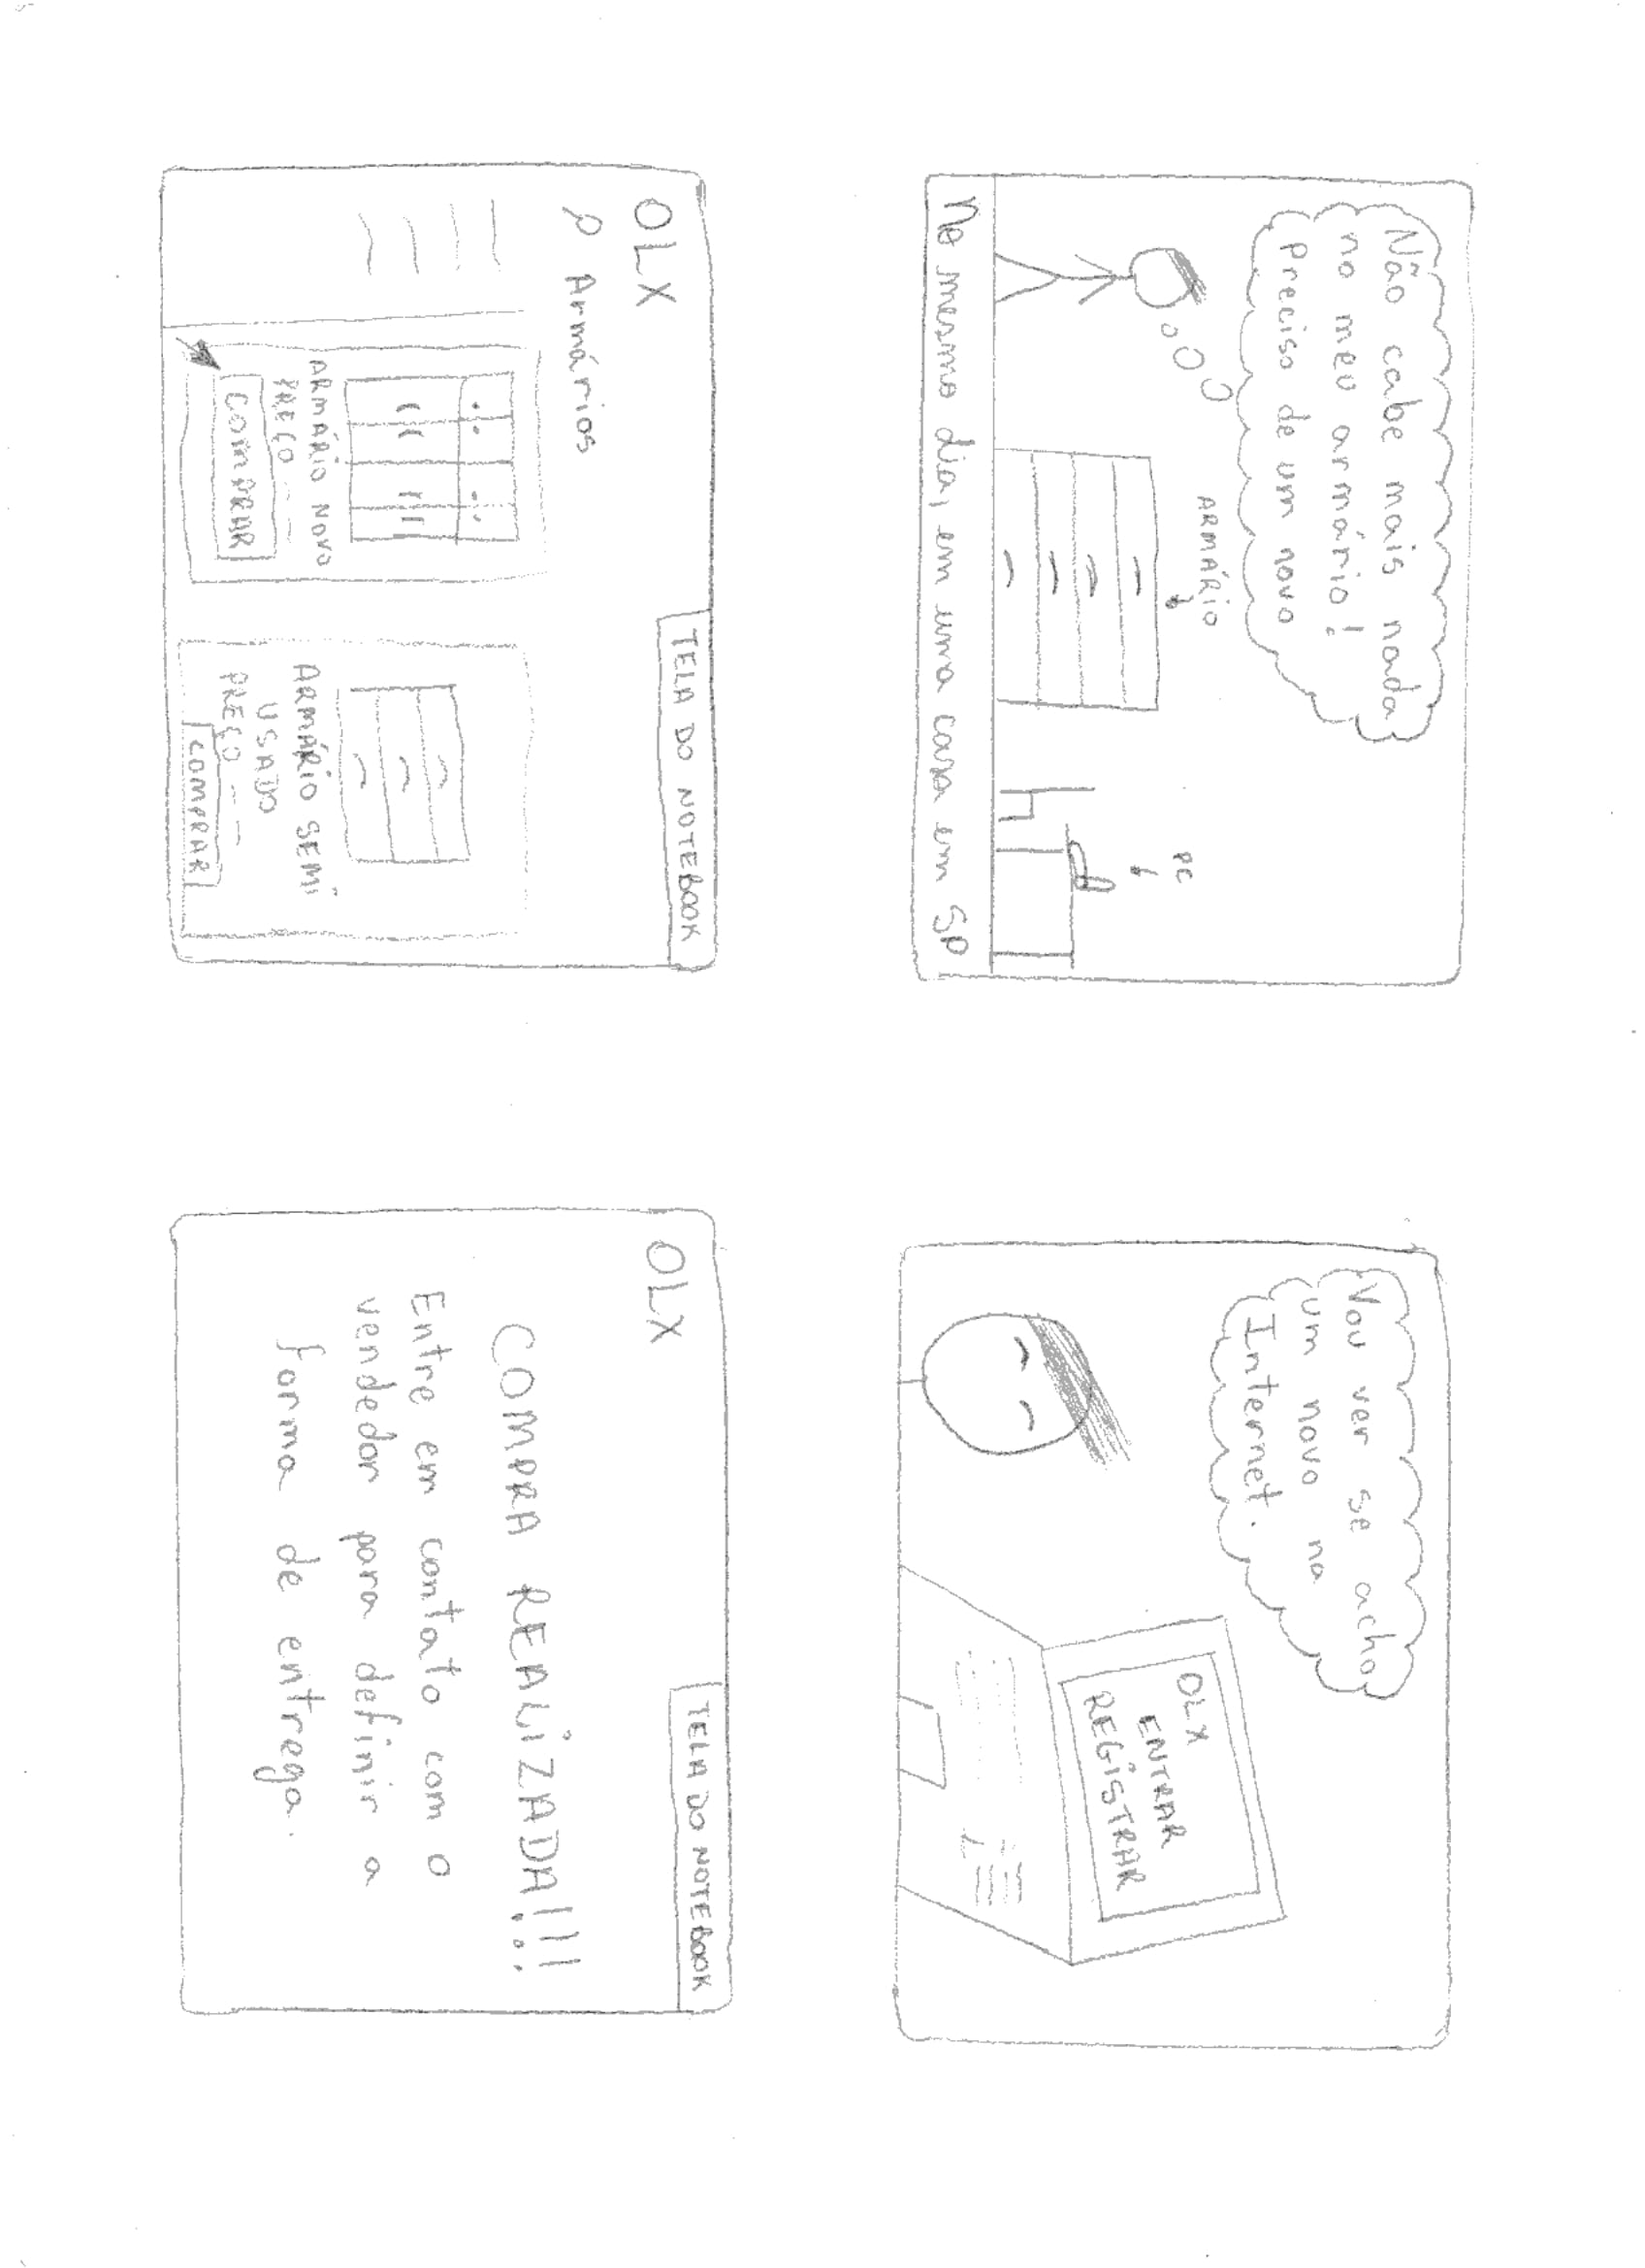 Não cabe mais nada
no meu armário!
Preciso de um novo
ARMÁRIO
PC
No mesmo dia, em uma casa em SP
Vou ver se acho
um novo na
Internet.
OLX
ENTRAR
REGISTRAR
TELA DO NOTEBOOK
OLX
Armários
ARMÁRIO NOVO
PREÇO
COMPRAR
ARMÁRIO SEMI
USADO
PREÇO
COMPRAR
TELA DO NOTEBOOK
OLX
COMPRA REALIZADA!!!
Entre em contato com o
vendedor para definir a
forma de entrega.